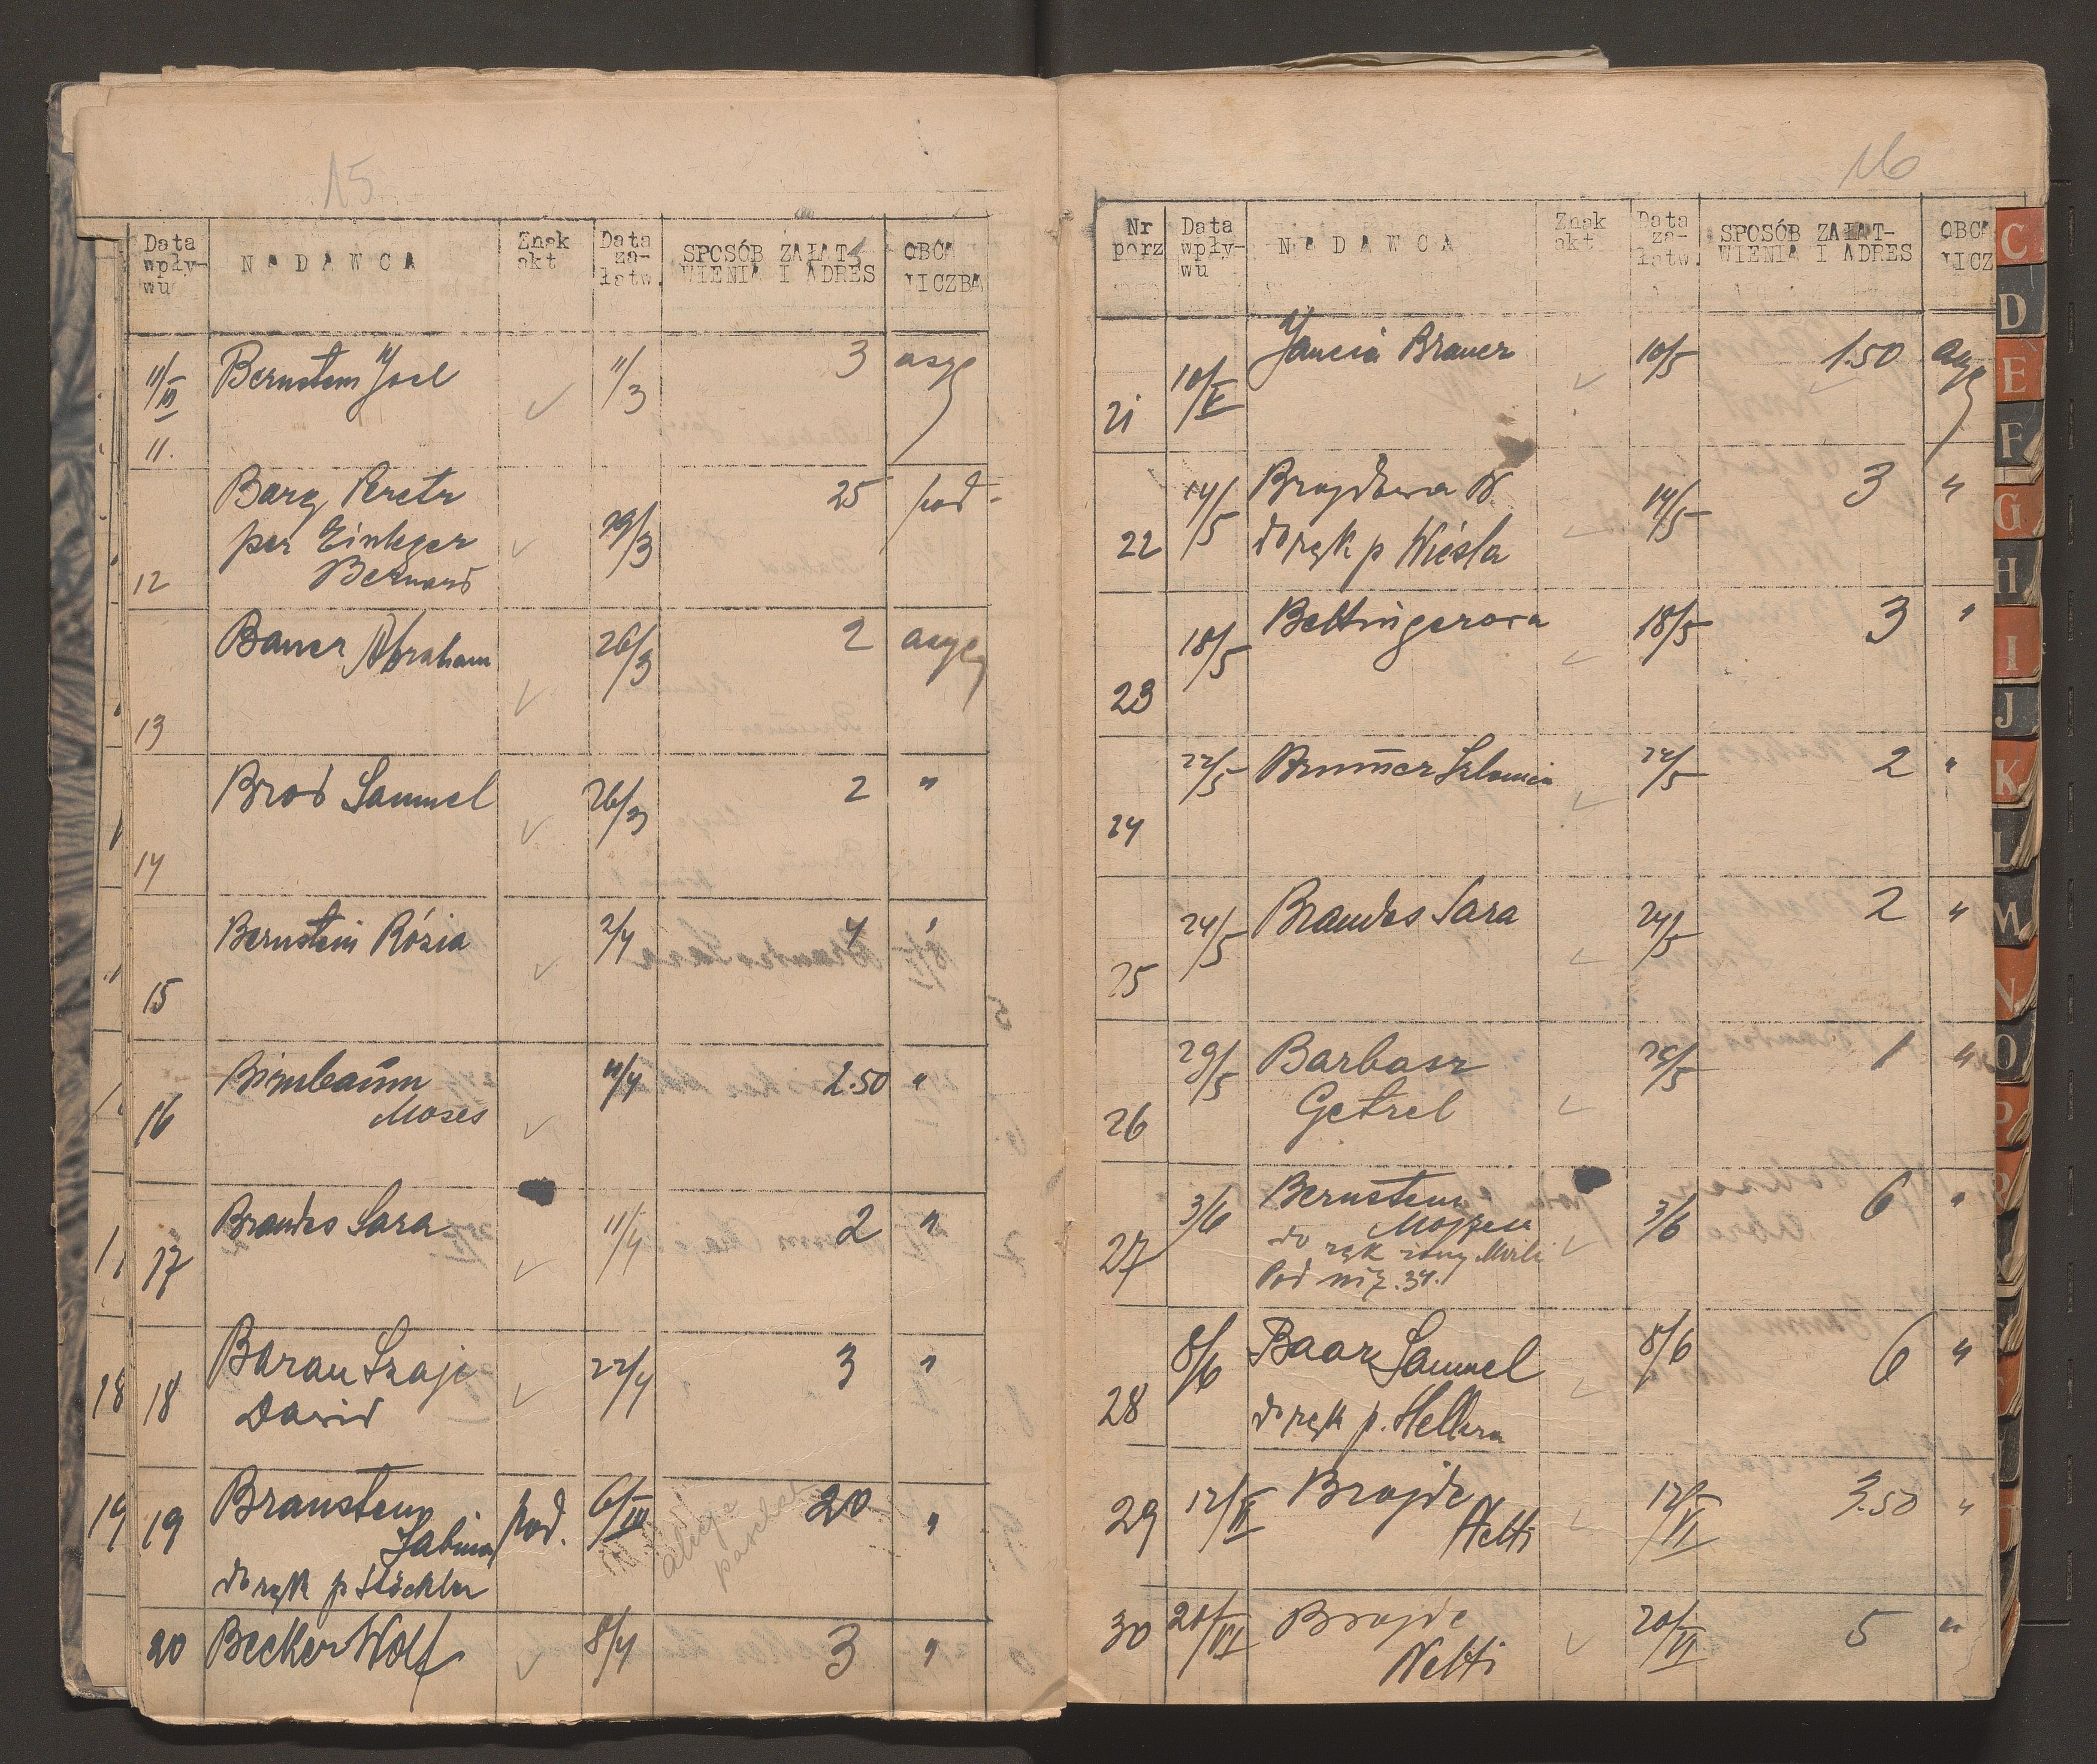 15
Data wpły- wu
NADAWCA
Znak akt
Data za- łatw.
SPOSÓB ZAŁAT- WIENIA I ADRES
OBCA LICZBA
11/III 11. Bernstein Josl 11/3 3 asyg
12 Barg Peretz 29/3 25 pod-
per Einleger
Bernard
13 Bauer Abraham 26/3 2 asyg
14 Brod Samuel 26/3 2 "
15 Bernstein Rózia 2/4 4 "
16 Birnbaum 11/4 2.50 "
Moses
17 Brandes Sara 11/4 2 "
18 18 Baran Szaje 22/4 3 "
Dawid
19 19 Braustein pod. 6/III 20 "
Sabina
do rąk p Stöckler
20 Becker Wolf 8/4 3 "
16
Nr porz
Data wpły- wu
NADAWCA
Znak akt
Data za- łatw.
SPOSÓB ZAŁAT- WIENIA I ADRES
OBCA LICZ
21 10/V Brauer 10/5 1.50 asyg
22 14/5 N. 14/5 3 "
do rąk p Wiesla
23 18/5 Bettingerowa 18/5 3 "
24 22/5 Brunner 22/5 2 "
25 24/5 Brandes Sara 24/5 2 "
26 29/5 Barbasz 29/5 1 "
Getzel
27 3/6 Bernstein 3/6 6 "
Mojżesz
do rąk żony
Pod niż. 34.
28 8/6 Baar Samuel 8/6 6 "
do rąk p. Hellera
29 12/VI Brojde 12/VI 3.50 "
Netti
30 20/VI Brojde 20/VI 5 "
Netti
C
D
E
F
G
H
I
J
K
L
M
N
O
P
R